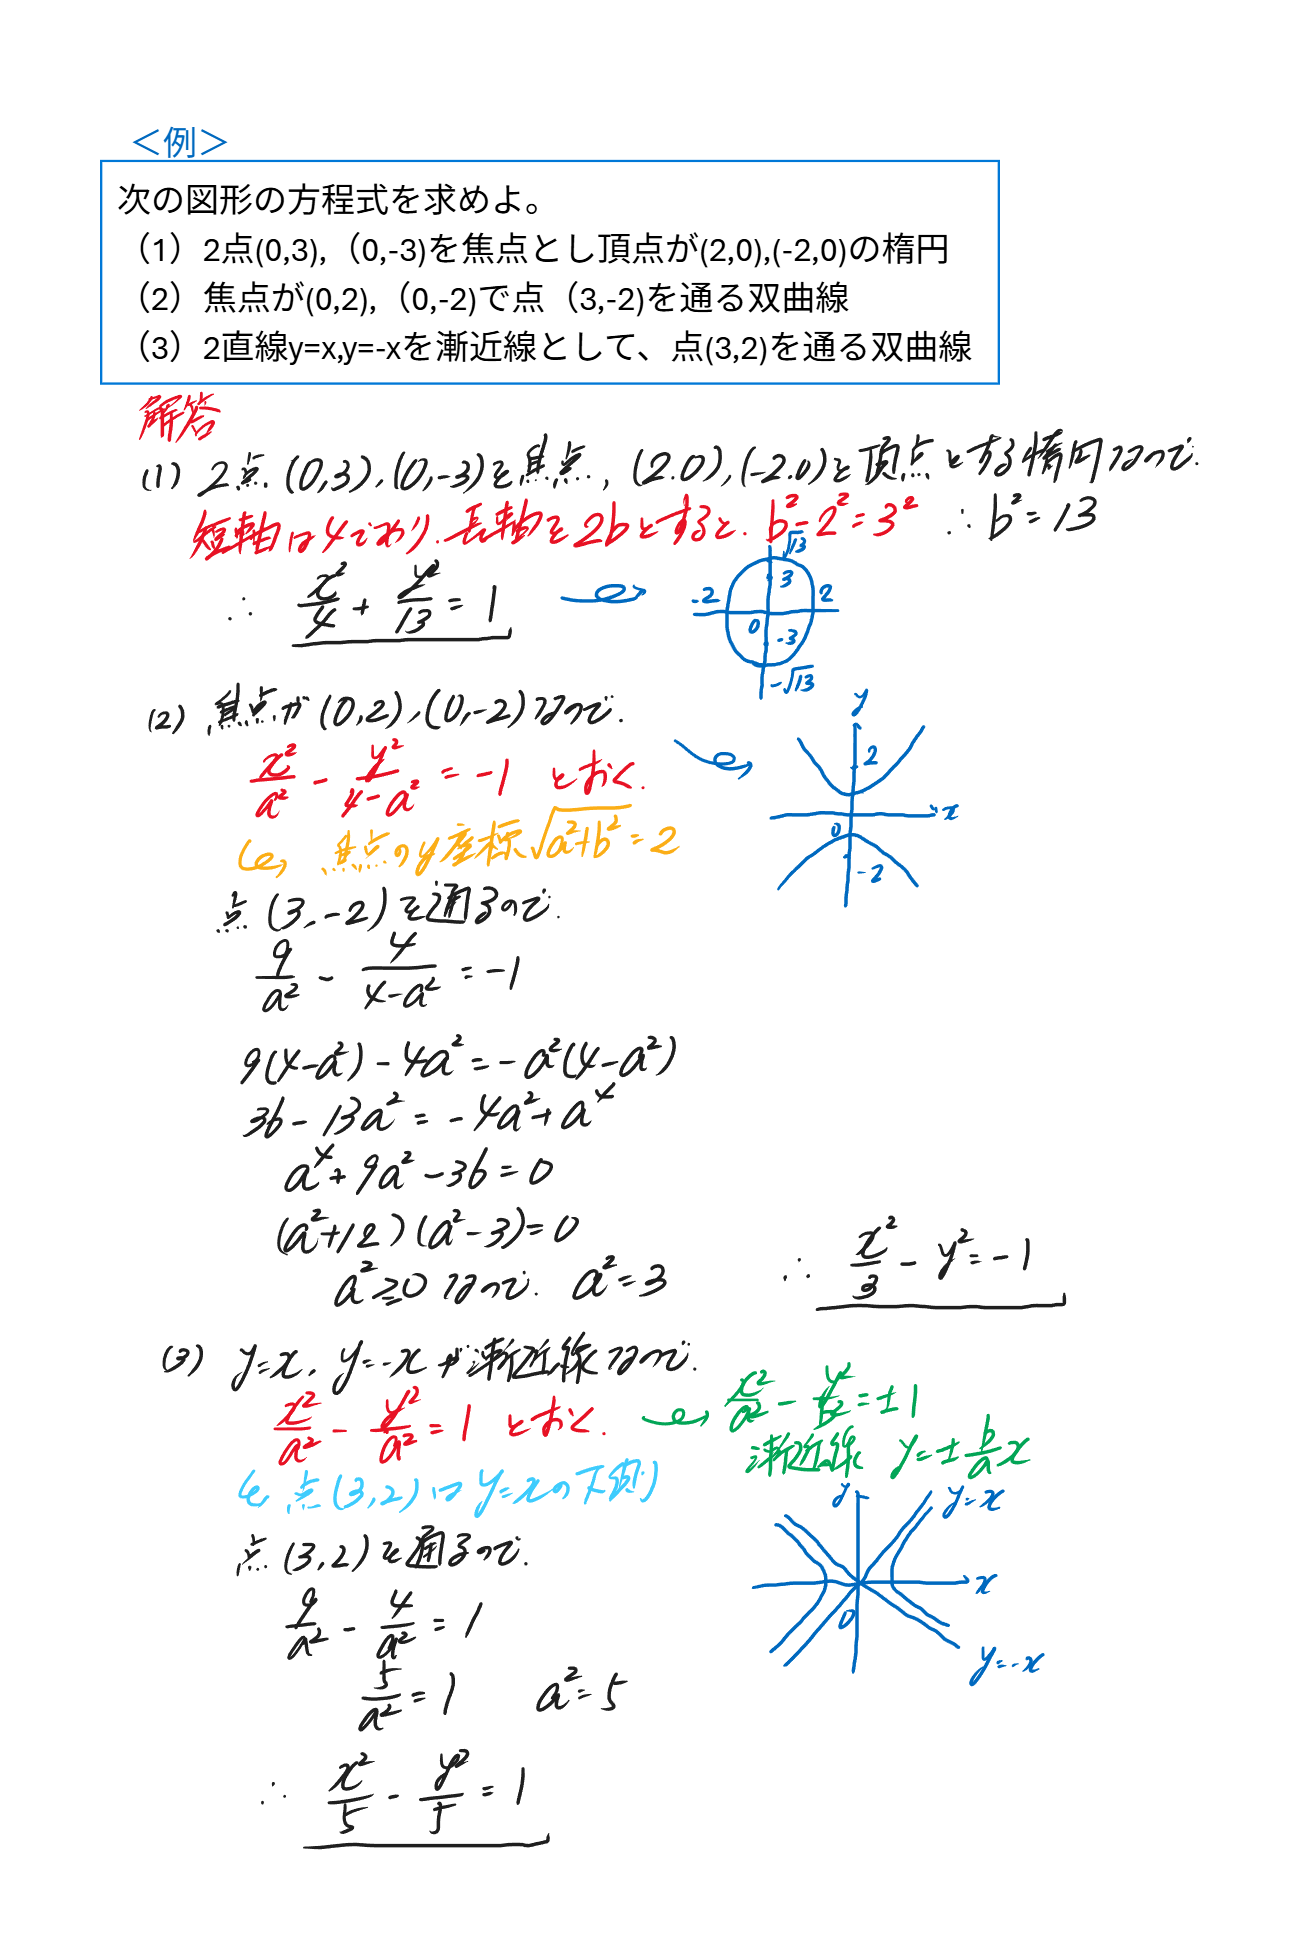 ＜例＞
次の図形の方程式を求めよ。
（1）2点(0,3),（0,-3)を焦点とし頂点が(2,0),(-2,0)の楕円
（2）焦点が(0,2),（0,-2)で点（3,-2)を通る双曲線
（3）2直線y=x,y=-xを漸近線として、点(3,2)を通る双曲線
解答
(1) 2点(0,3),(0,-3)を焦点,(2.0),(-2.0)を頂点とする楕円なので.
短軸は4であり.長軸を2bとすると. b²-2²=3² ∴ b²=13
∴ x²/4 + y²/13 = 1
√13
3
-2 2
0
-3
-√13
(2) 焦点が(0,2),(0,-2)なので.
x²/a² - y²/(4-a²) = -1 とおく.
焦点のy座標√(a²+b²)=2
y
2
x
0
-2
点(3,-2)を通るので.
9/a² - 4/(4-a²) = -1
9(4-a²)-4a²=-a²(4-a²)
36-13a²=-4a²+a⁴
a⁴+9a²-36=0
(a²+12)(a²-3)=0
a²≧0なので. a²=3
∴ x²/3 - y² = -1
(3) y=x, y=-xが漸近線なので.
x²/a² - y²/a² = 1 とおく.
x²/a² - y²/b² = ±1
漸近線 y=±b/a x
点(3,2)はy=xの下側
y
y=x
x
0
y=-x
点(3,2)を通るので.
9/a² - 4/a² = 1
5/a² = 1 a²=5
∴ x²/5 - y²/5 = 1